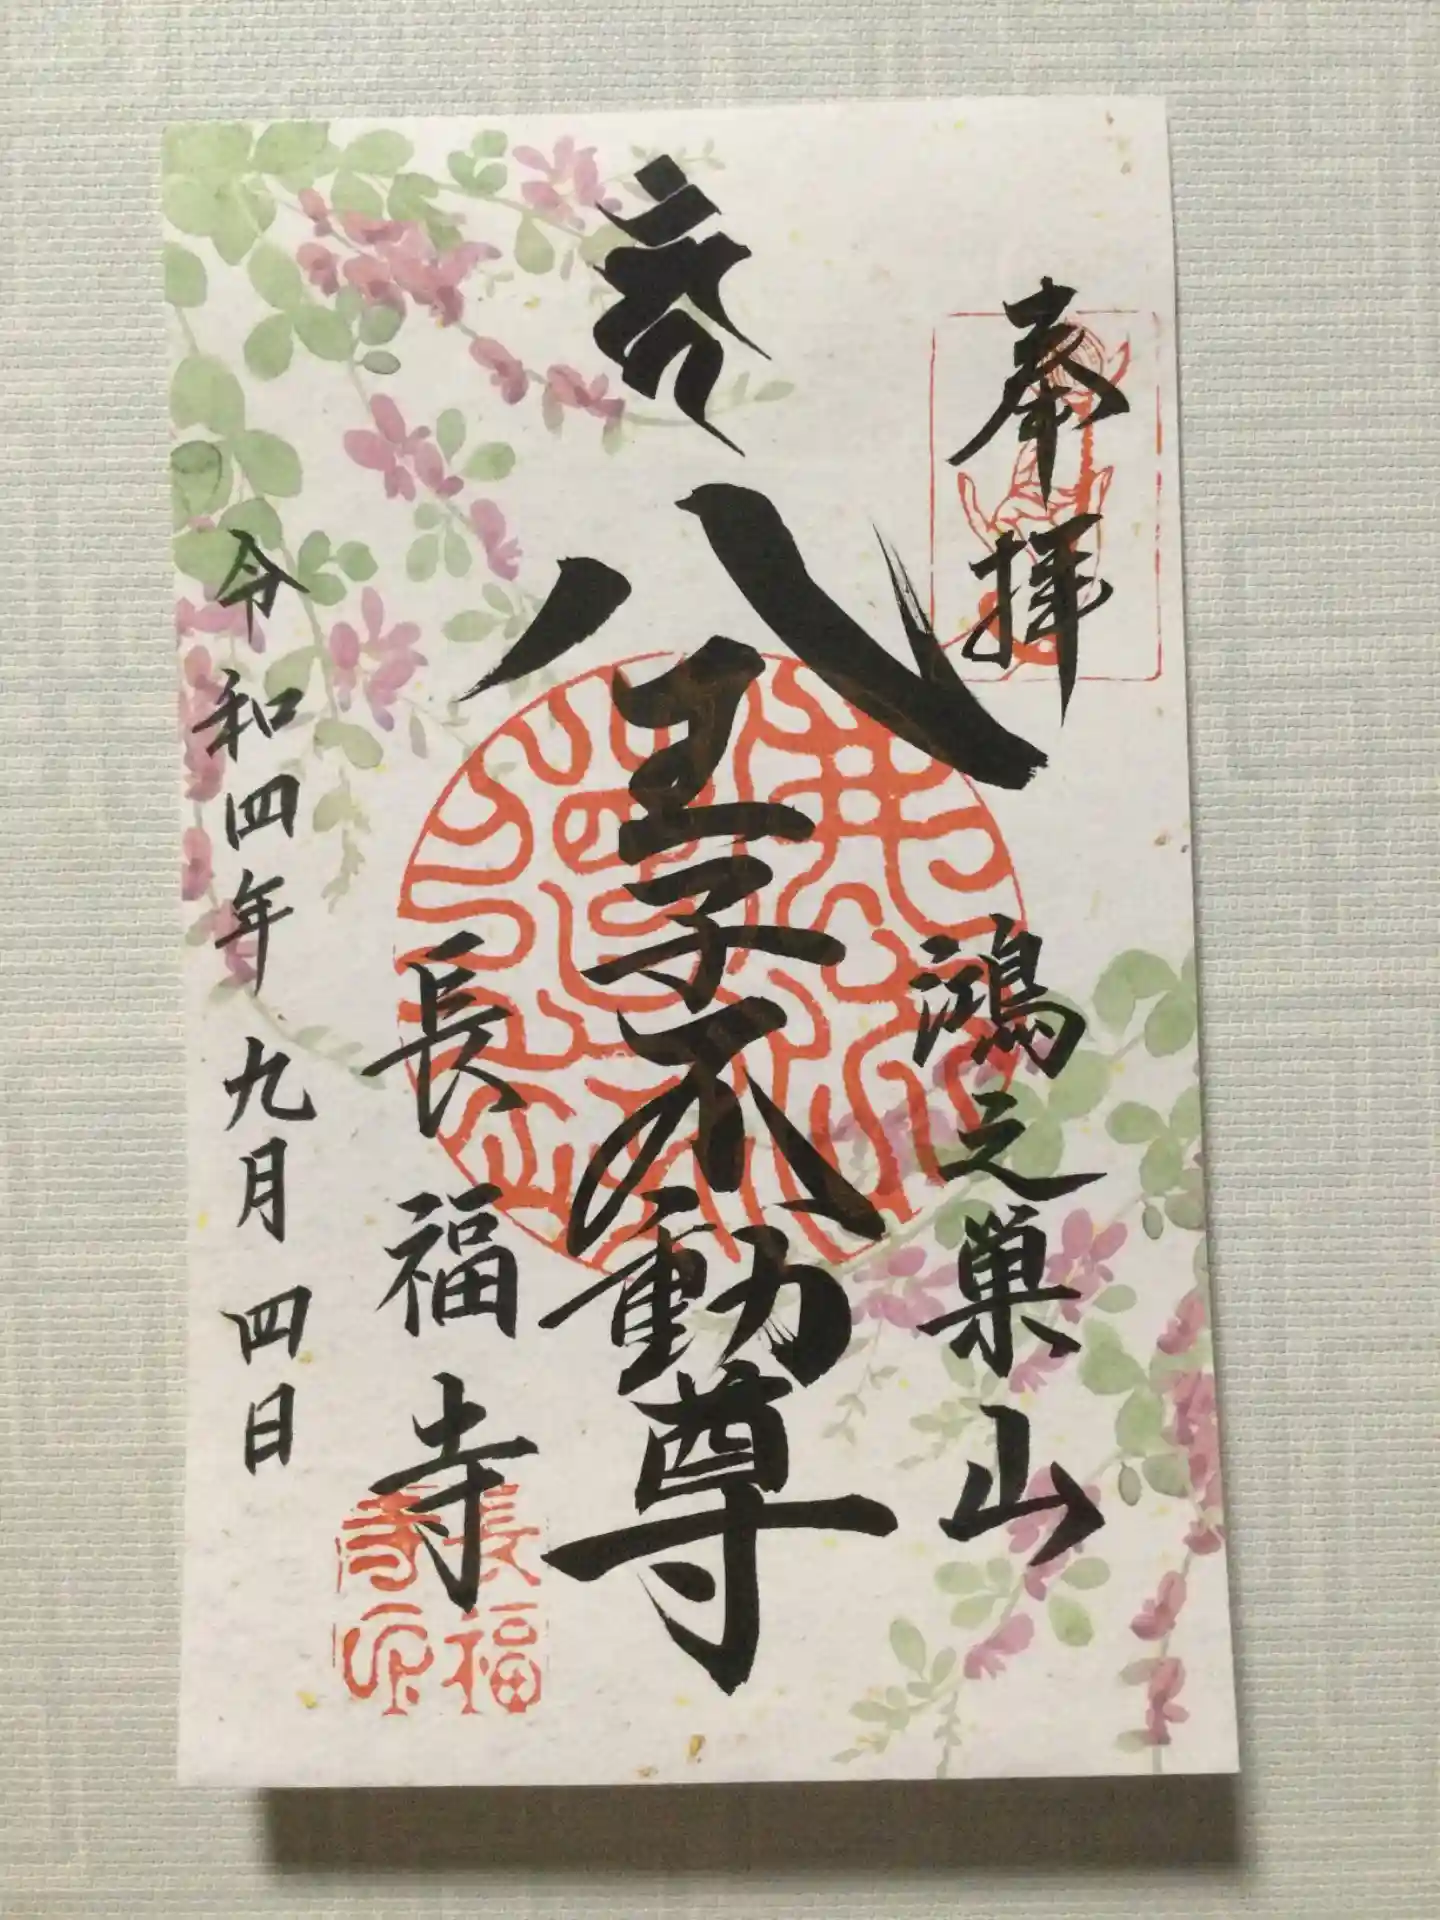 奉拝
鴻之巣山
八王子不動尊
長福寺
令和四年九月四日
長福
寺印